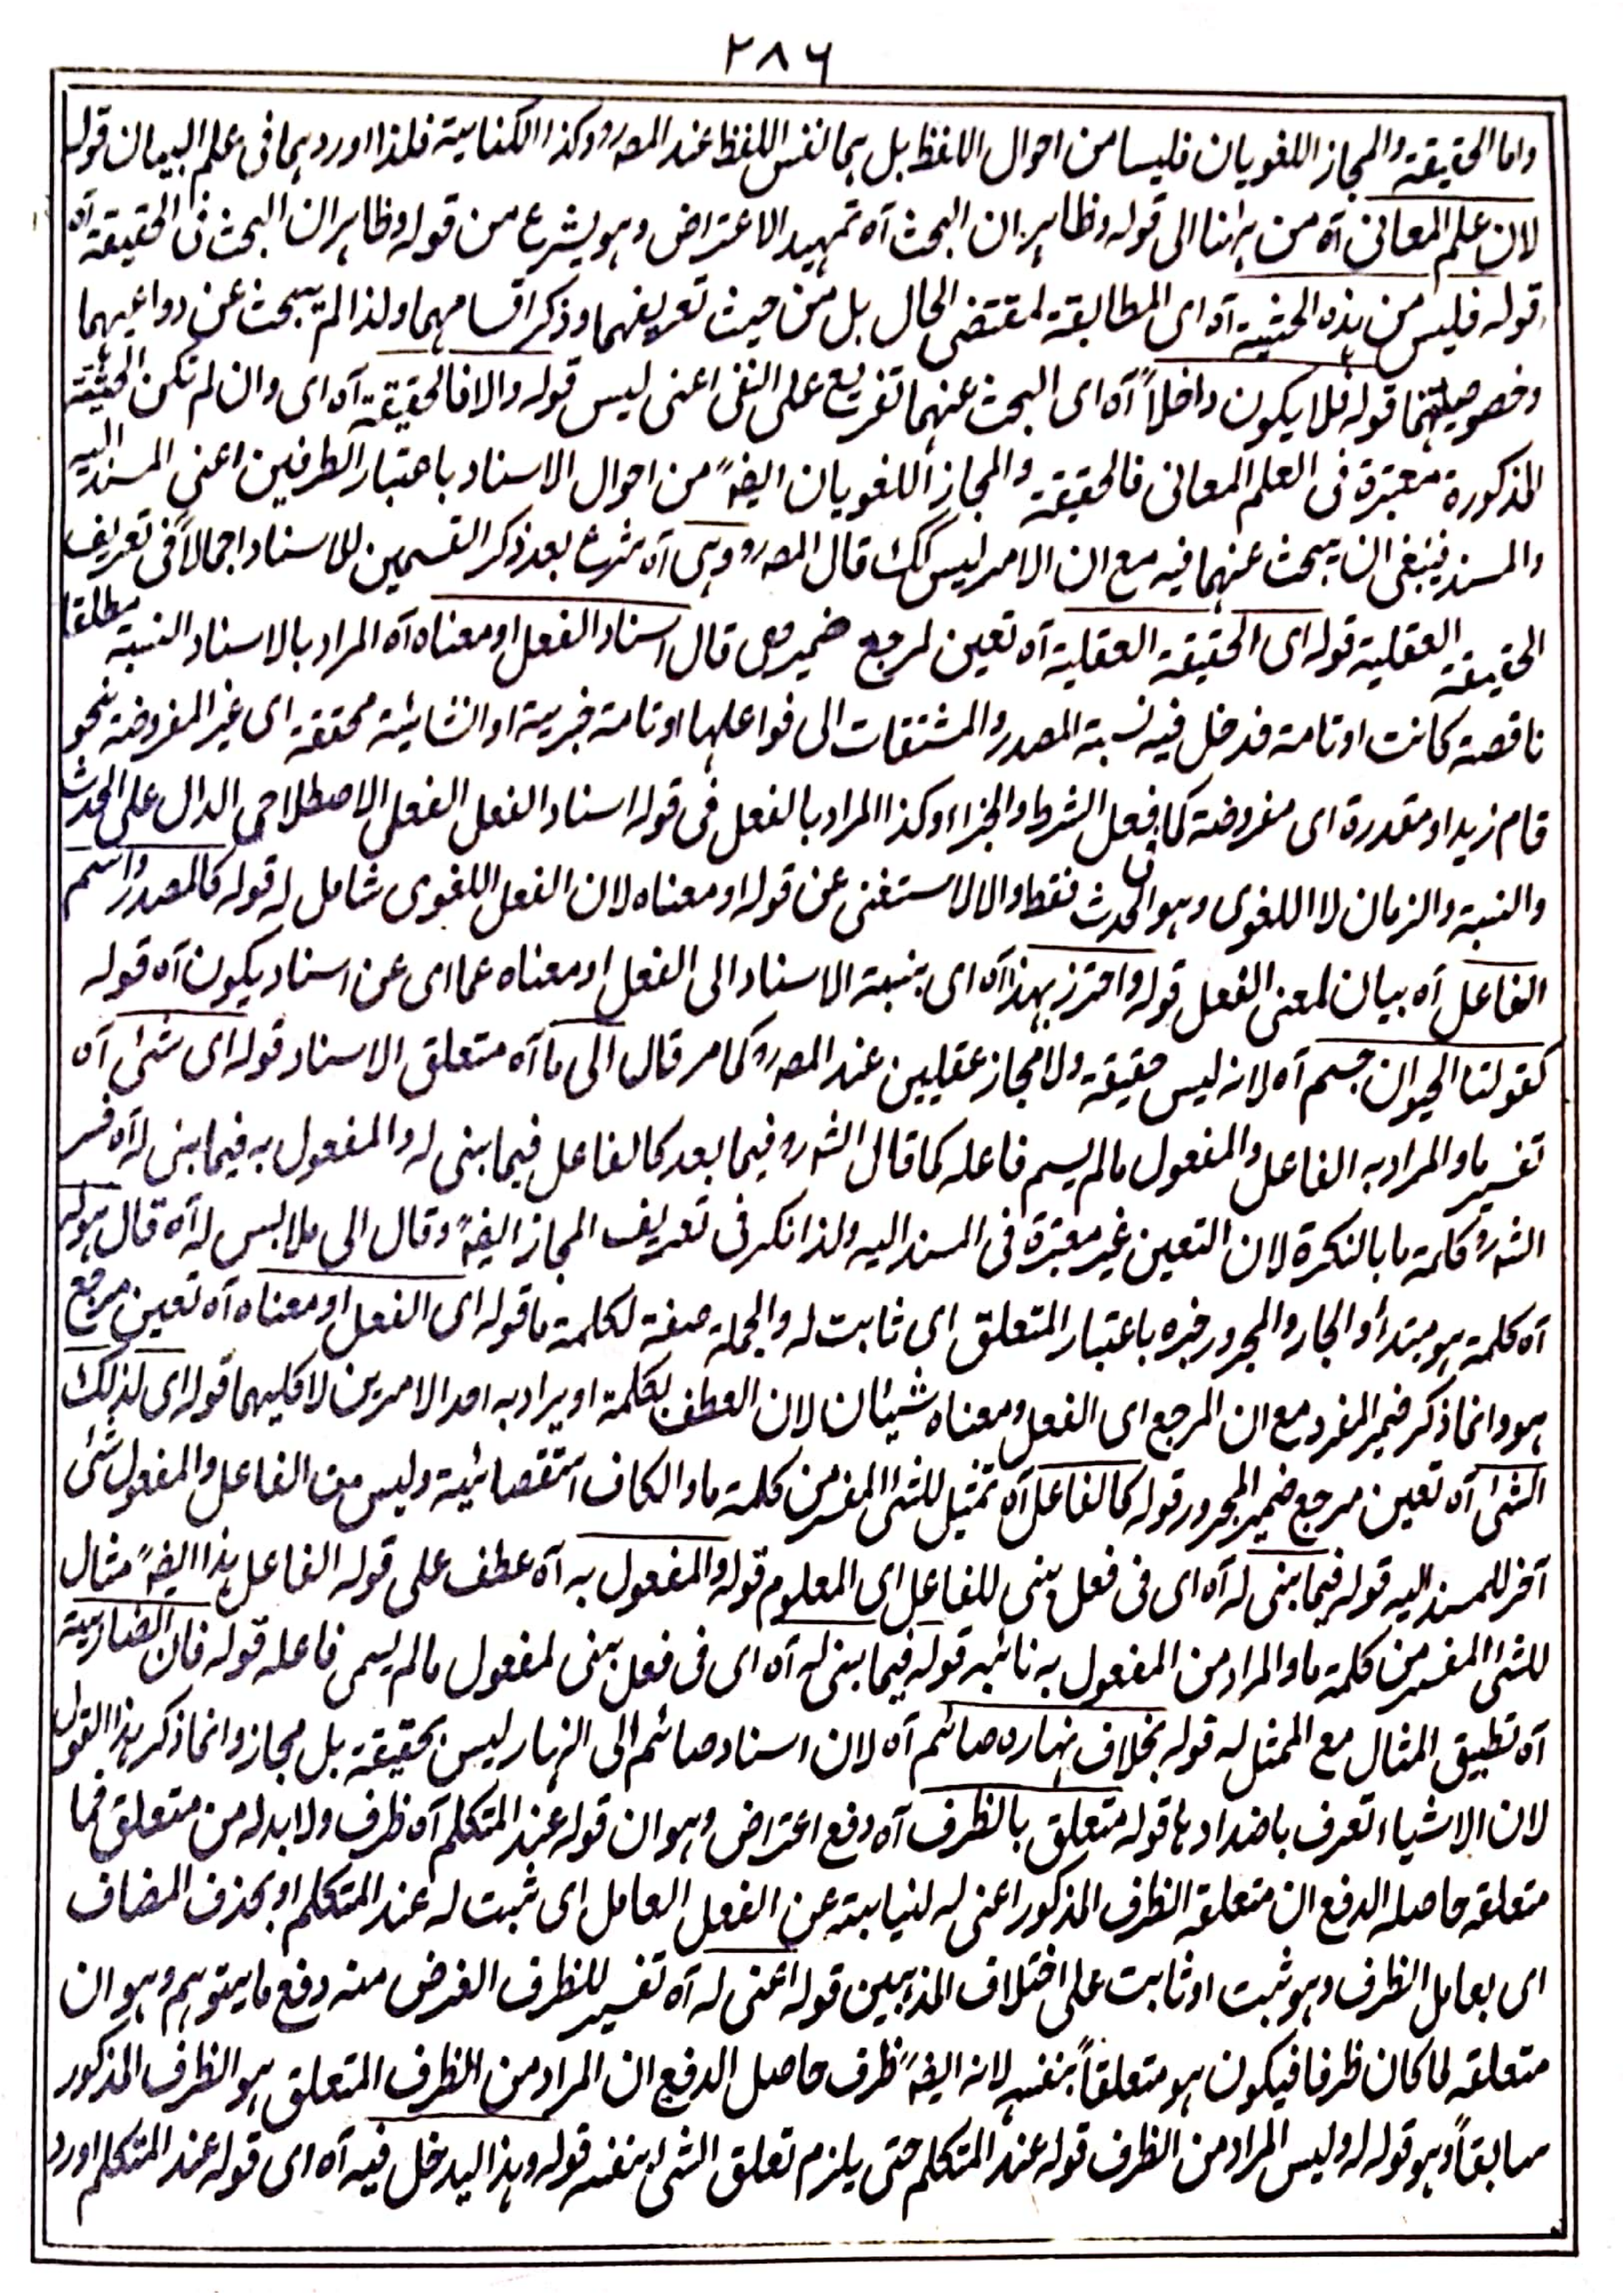 ٢٨٦
واما الحقيقة والمجاز اللغويان فليسا من احوال اللفظ بل هما نفس اللفظ عند المصرو وكذا الكناية فلذا اوردهما فى علم البيان قوله
لان علم المعانى آه من هٰهنا الى قوله وظاهر ان البحث آه تمهيد الاعتراض وهو يشرع من قوله وظاهر ان البحث فى الحقيقة آه
قوله فليس من هذه الحيثية آه اى المطابقة لمقتضى الحال بل من حيث تعريفهما وذكر اقسامهما ولذا لم يبحث عن دواعيهما
وخصوصيتهما قوله فلا يكون داخلاً آه اى البحث عنهما تفريع على النفى اعنى ليس قوله والا فالحقيقة آه اى وان لم تكن الحيثية
المذكورة معتبرة فى العلم المعانى فالحقيقة والمجاز اللغويان ايضہً من احوال الاسناد باعتبار الطرفين اعنى المسند اليه
والمسند فينبغى ان يبحث عنهما فيه مع ان الامر ليس كك قال المصرو وهى آه شرع بعد ذكر القسمين للاسناد اجمالاً فى تعريف
الحقيقة العقلية قوله اى الحقيقة العقلية آه تعين لمرجع ضمير هى قال اسناد الفعل او معناه آه المراد بالاسناد النسبة مطلقا
ناقصة كانت او تامة فدخل فيه نسبة المصدر والمشتقات الى فواعلها او تامة خبرية او انشائية محققة اى غير المفروضة نحو
قام زيد او مقدرة اى مفروضة كما فى فعل الشرط والجزاء وكذا المراد بالفعل فى قوله اسناد الفعل الفعل الاصطلاحى الدال على الحدث
والنسبة والزمان لا اللغوى وهو الحدث فقط والا لاستغنى عن قوله او معناه لان الفعل اللغوى شامل له قوله كالمصدر واسم
الفاعل آه بيان لمعنى الفعل قوله واحترز بهذا آه اى بنسبة الاسناد الى الفعل او معناه عما اى عن اسناد يكون آه قوله
كقولنا الحيوان جسم آه لانه ليس حقيقة ولا مجاز عقليين عند المصرو كما مر قال الى ما آه متعلق الاسناد قوله اى شئ آه
تفسير ما والمراد به الفاعل والمفعول مالم يسم فاعله كما قال الشہرو فيما بعد كالفاعل فيما بنى له والمفعول به فيما بنى له آه فسر
الشہرو كلمة ما بالنكرة لان التعين غير معتبرة فى المسند اليه ولذا نكر فى تعريف المجاز ايضہً وقال الى ملابس له آه قال هو له
آه كلمة هو مبتدأ والجار والمجرور خبره باعتبار المتعلق اى ثابت له والجملة صفة لكلمة ما قوله اى الفعل او معناه آه تعين مرجع
هو وانما ذكر ضمير المفرد مع ان المرجع اى الفعل ومعناه شيئان لان العطف بكلمة او يراد به احد الامرين لا كليهما قوله اى لذلك
الشئ آه تعين مرجع ضمير المجرور قوله كالفاعل آه تمثيل للشئ المفسر من كلمة ما والكاف استقصائية وليس من الفاعل والمفعول شئ
آخر للمسند اليه قوله فيما بنى له آه اى فى فعل بنى للفاعل اى المعلوم قوله والمفعول به آه عطف على قوله الفاعل هذا ايضہً مثال
للشئ المفسر من كلمة ما والمراد من المفعول به نائبه قوله فيما بنى له آه اى فى فعل بنى لمفعول مالم يسمى فاعله قوله فان الضاربية
آه تطبيق المثال مع الممثل له قوله بخلاف نهاره صائم آه لان اسناد صائم الى النهار ليس بحقيقة بل مجاز وانما ذكر هذا القول
لان الاشياء تعرف باضدادها قوله متعلق بالظرف آه دفع اعتراض وهو ان قوله عند المتكلم آه ظرف ولابد له من متعلق فما
متعلقه حاصله الدفع ان متعلقه الظرف المذكور اعنى له لنيابته عن الفعل العامل اى ثبت له عند المتكلم او بحذف المضاف
اى بعامل الظرف وهو ثبت او ثابت على اختلاف المذهبين قوله اعنى له آه تفسير للظرف الغرض منه دفع ما يتوهم وهو ان
متعلقه لما كان ظرفا فيكون هو متعلقاً بنفسه لانه ايضہً ظرف حاصل الدفع ان المراد من الظرف المتعلق هو الظرف المذكور
سابقاً وهو قوله له وليس المراد من الظرف قوله عند المتكلم حتى يلزم تعلق الشئ بنفسه قوله وهذا ليدخل فيه آه اى قوله عند المتكلم اورد